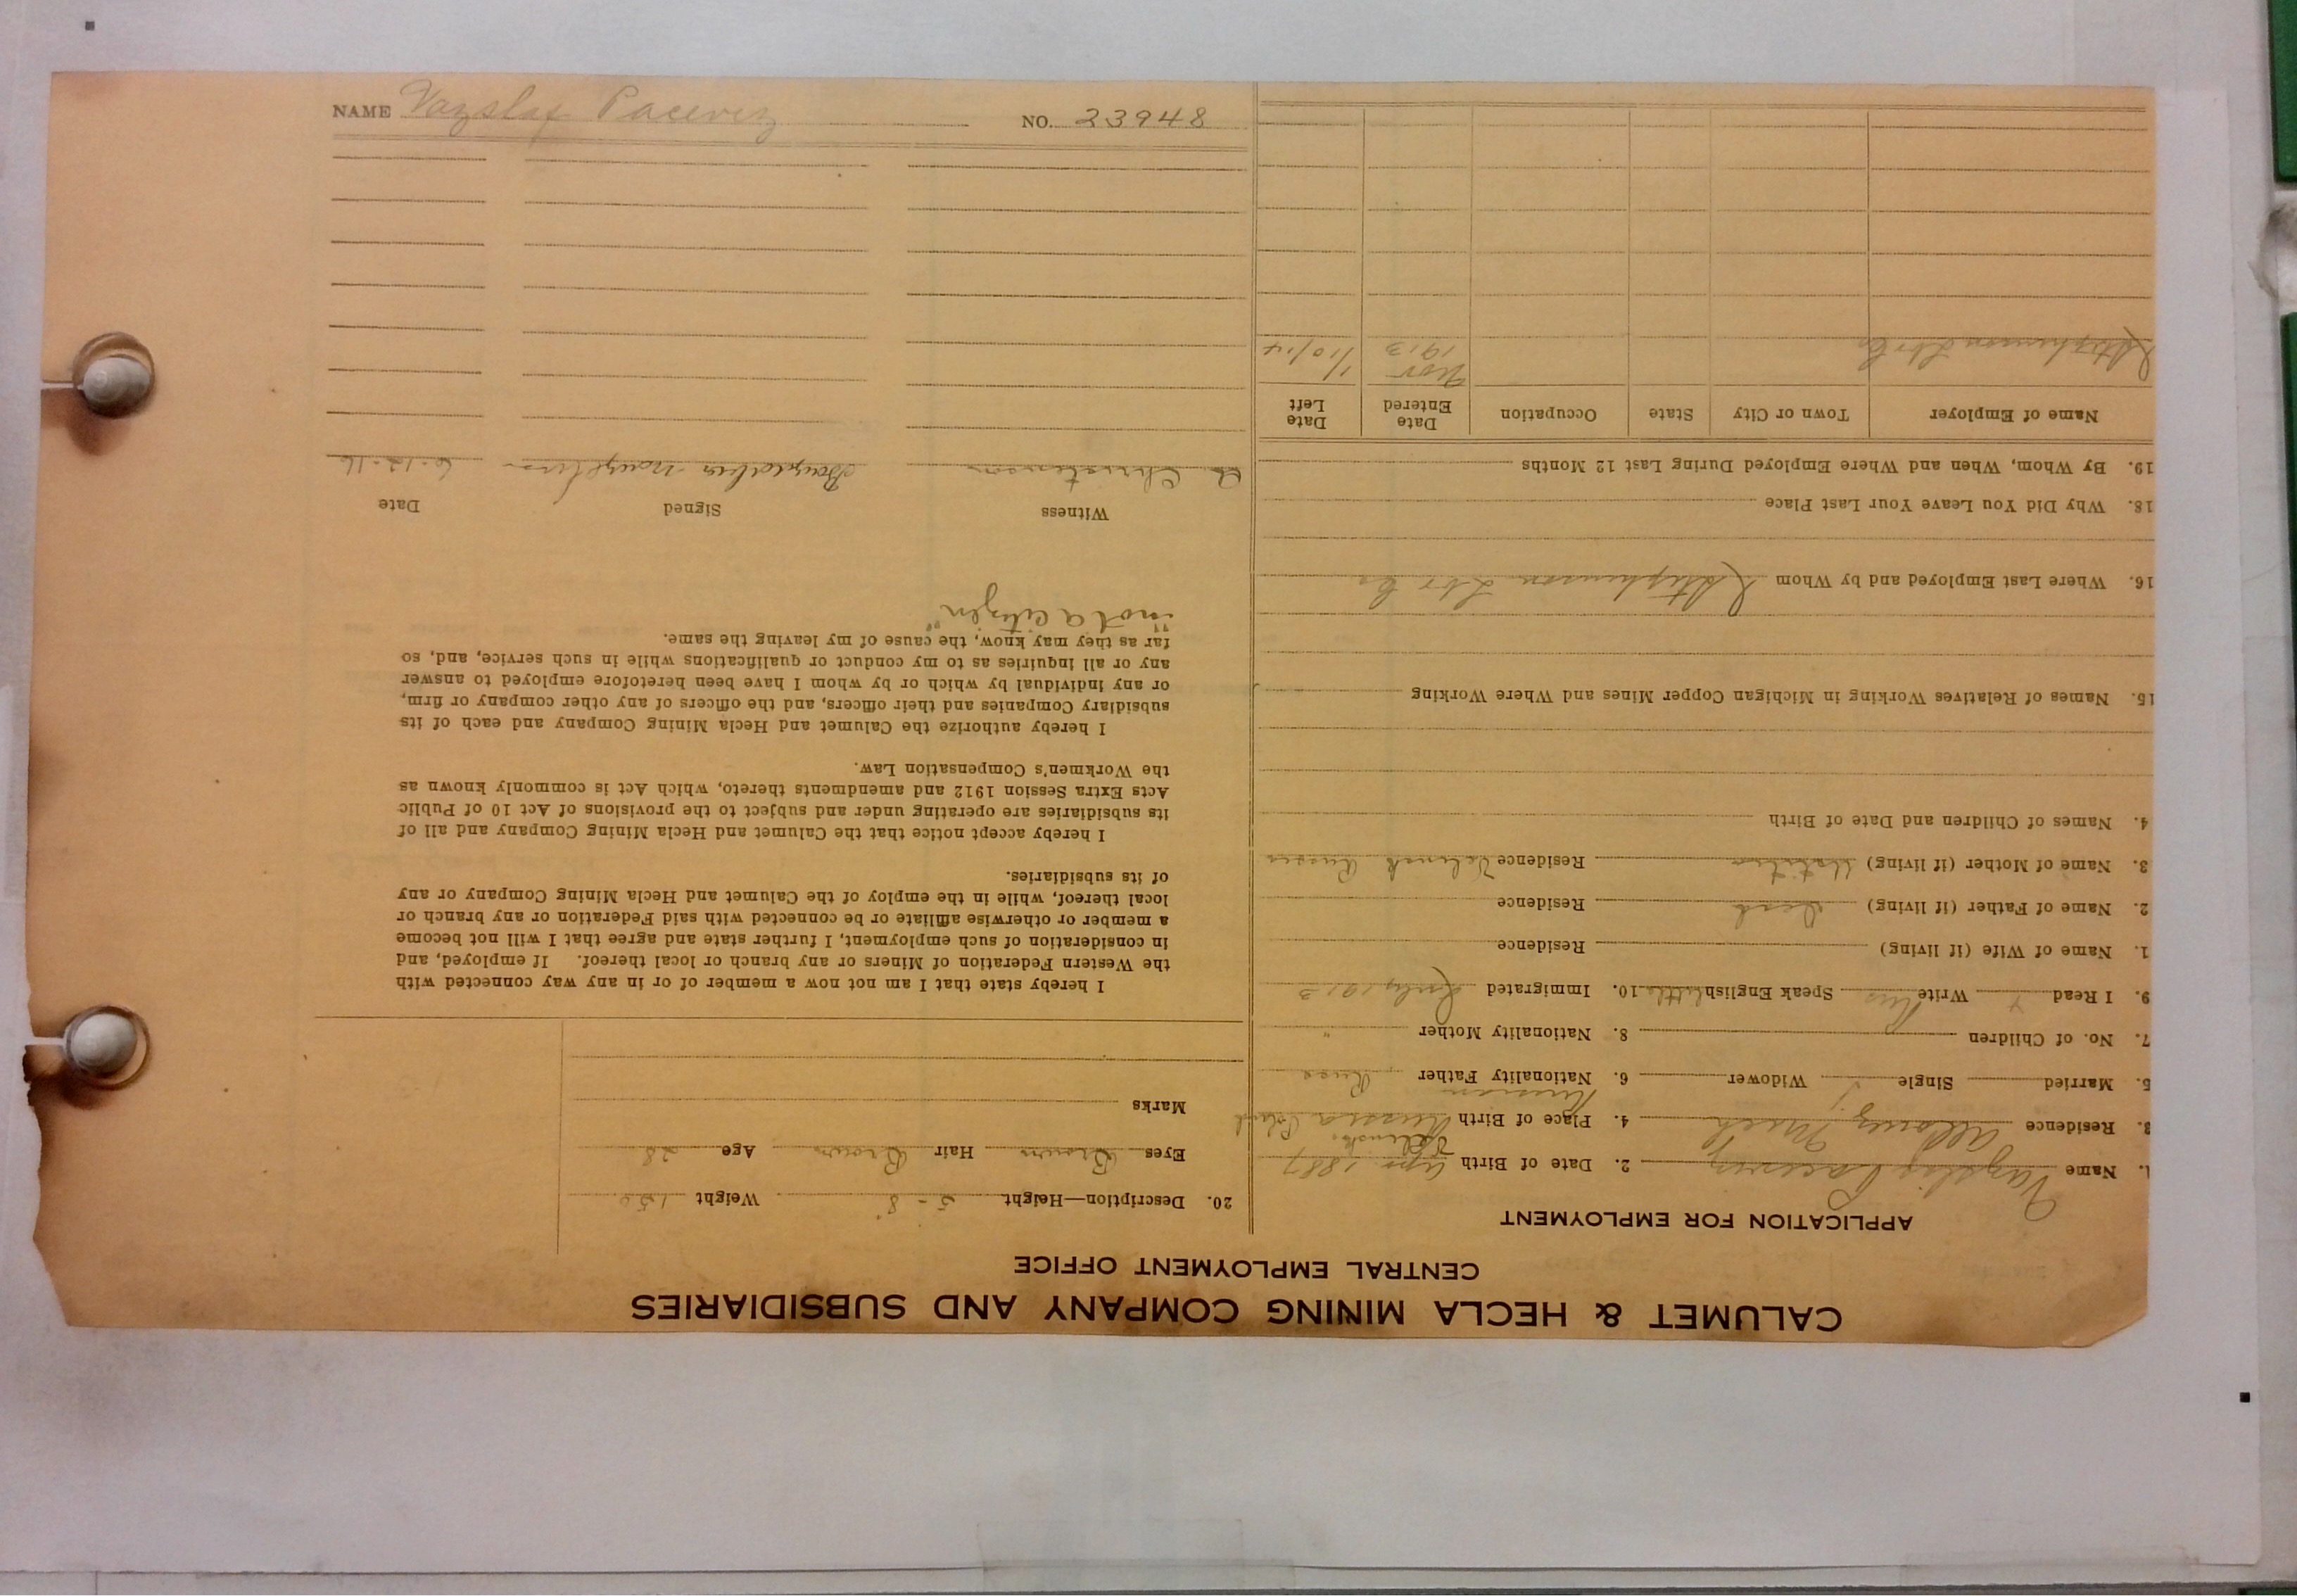 CALUMET & HECLA MINING COMPANY AND SUBSIDIARIES
CENTRAL EMPLOYMENT OFFICE
APPLICATION FOR EMPLOYMENT
1. Name Vazslaf Pacevez 2. Date of Birth Apr 1887
3. Residence Allouez Mich 4. Place of Birth Russia Poland
Russian
5. Married Single ✓ Widower 6. Nationality Father Russ
7. No. of Children 8. Nationality Mother "
9. I Read Write Speak English little 10. Immigrated July 1913
1. Name of Wife (if living) Residence
2. Name of Father (if living) Dead Residence
3. Name of Mother (if living) Residence Russia
4. Names of Children and Date of Birth
15. Names of Relatives Working in Michigan Copper Mines and Where Working
16. Where Last Employed and by Whom Stephenson Lbr Co
18. Why Did You Leave Your Last Place
19. By Whom, When and Where Employed During Last 12 Months
Name of Employer Town or City State Occupation Date Entered Date Left
Stephenson Lbr Co Nov 1913 1/10/14
20. Description—Height 5-8" Weight 150
Eyes Brown Hair Brown Age 28
Marks
I hereby state that I am not now a member of or in any way connected with
the Western Federation of Miners or any branch or local thereof. If employed, and
in consideration of such employment, I further state and agree that I will not become
a member or otherwise affiliate or be connected with said Federation or any branch or
local thereof, while in the employ of the Calumet and Hecla Mining Company or any
of its subsidiaries.
I hereby accept notice that the Calumet and Hecla Mining Company and all of
its subsidiaries are operating under and subject to the provisions of Act 10 of Public
Acts Extra Session 1912 and amendments thereto, which Act is commonly known as
the Workmen's Compensation Law.
I hereby authorize the Calumet and Hecla Mining Company and each of its
subsidiary Companies and their officers, and the officers of any other company or firm,
or any individual by which or by whom I have been heretofore employed to answer
any or all inquiries as to my conduct or qualifications while in such service, and, so
far as they may know, the cause of my leaving the same.
"not a citizen"
Witness Signed Date
Christenson 6-12-16
NAME Vazslaf Pacevez NO. 23948